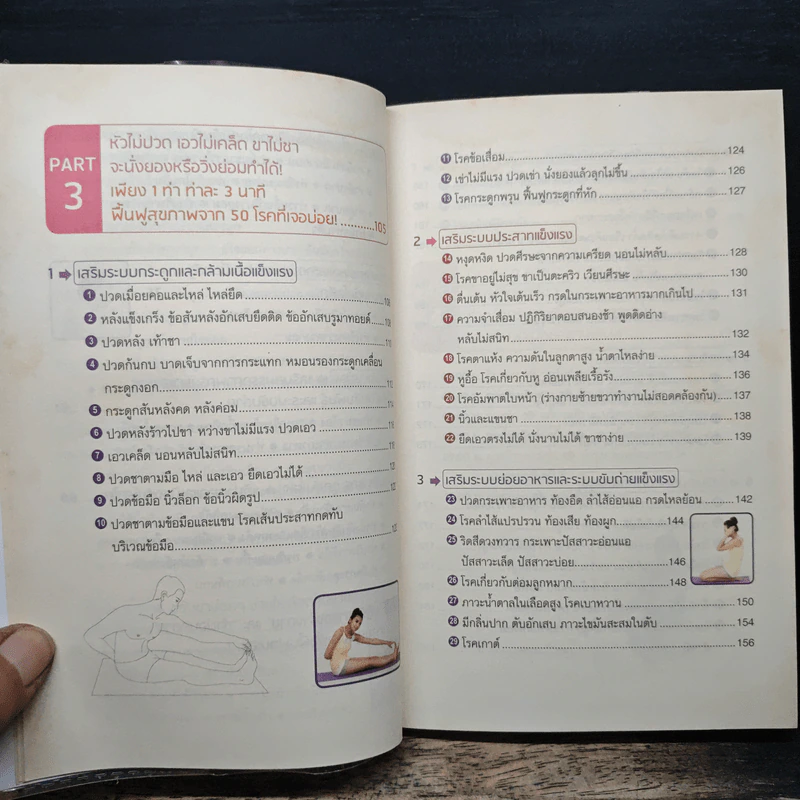 PART
3
หัวไม่ปวด เอวไม่เคล็ด ขาไม่ชา
จะนั่งยองหรือวิ่งย่อมทำได้!
เพียง 1 ท่า ท่าละ 3 นาที
ฟื้นฟูสุขภาพจาก 50 โรคที่เจอบ่อย! ..........105
1 เสริมระบบกระดูกและกล้ามเนื้อแข็งแรง
1 ปวดเมื่อยคอและไหล่ ไหล่ยึด
2 หลังแข็งเกร็ง ข้อสันหลังอักเสบยึดติด ข้ออักเสบรูมาทอยด์
3 ปวดหลัง เท้าชา
4 ปวดก้นกบ บาดเจ็บจากการกระแทก หมอนรองกระดูกเคลื่อน
กระดูกงอก
5 กระดูกสันหลังคด หลังค่อม
6 ปวดหลังร้าวไปขา หว่างขาไม่มีแรง ปวดเอว
7 เอวเคล็ด นอนหลับไม่สนิท
8 ปวดชาตามมือ ไหล่ และเอว ยืดเอวไม่ได้
9 ปวดข้อมือ นิ้วล็อก ข้อนิ้วผิดรูป
10 ปวดชาตามข้อมือและแขน โรคเส้นประสาทกดทับ
บริเวณข้อมือ
11 โรคข้อเสื่อม 124
12 เข่าไม่มีแรง ปวดเข่า นั่งยองแล้วลุกไม่ขึ้น 126
13 โรคกระดูกพรุน ฟื้นฟูกระดูกที่หัก 127
2 เสริมระบบประสาทแข็งแรง
14 หงุดหงิด ปวดศีรษะจากความเครียด นอนไม่หลับ 128
15 โรคขาอยู่ไม่สุข ขาเป็นตะคริว เวียนศีรษะ 130
16 ตื่นเต้น หัวใจเต้นเร็ว กรดในกระเพาะอาหารมากเกินไป 131
17 ความจำเสื่อม ปฏิกิริยาตอบสนองช้า พูดติดอ่าง
หลับไม่สนิท 132
18 โรคตาแห้ง ความดันในลูกตาสูง น้ำตาไหลง่าย 134
19 หูอื้อ โรคเกี่ยวกับหู อ่อนเพลียเรื้อรัง 136
20 โรคอัมพาตใบหน้า (ร่างกายซ้ายขวาทำงานไม่สอดคล้องกัน) 137
21 นิ้วและแขนชา 138
22 ยืดเอวตรงไม่ได้ นั่งนานไม่ได้ ขาชาง่าย 139
3 เสริมระบบย่อยอาหารและระบบขับถ่ายแข็งแรง
23 ปวดกระเพาะอาหาร ท้องอืด ลำไส้อ่อนแอ กรดไหลย้อน 142
24 โรคลำไส้แปรปรวน ท้องเสีย ท้องผูก 144
25 ริดสีดวงทวาร กระเพาะปัสสาวะอ่อนแอ
ปัสสาวะเล็ด ปัสสาวะบ่อย 146
26 โรคเกี่ยวกับต่อมลูกหมาก 148
27 ภาวะน้ำตาลในเลือดสูง โรคเบาหวาน 150
28 มีกลิ่นปาก ตับอักเสบ ภาวะไขมันสะสมในตับ 154
29 โรคเกาต์ 156